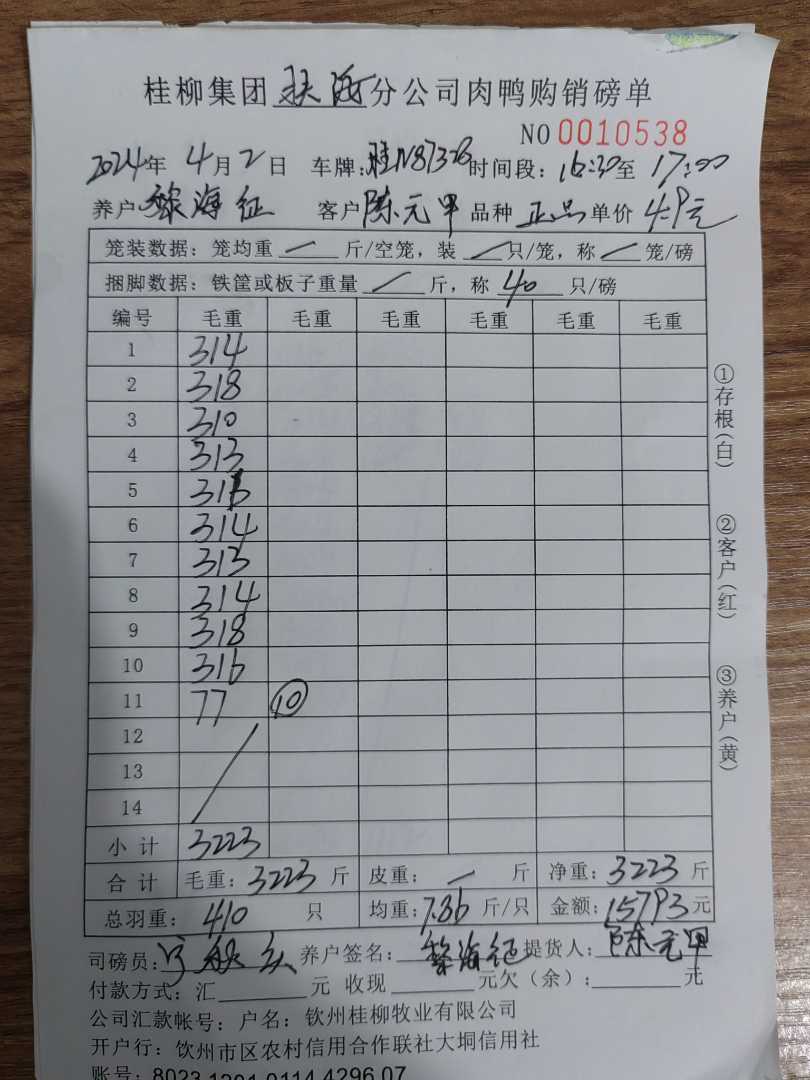 桂柳集团 分公司肉鸭购销磅单
NO 0010538
2024年 4月2日 车牌: 时间段:16:30至17:00
养户黎海征 客户陈元甲 品种 正品 单价 4.9元
笼装数据:笼均重 / 斤/空笼,装 / 只/笼,称 / 笼/磅
捆脚数据:铁筐或板子重量 / 斤,称 40 只/磅
编号 毛重 毛重 毛重 毛重 毛重 毛重
1 314
2 318
3 310
4 313
5 316
6 314
7 313
8 314
9 318
10 316
11 77 10
12
13
14
小计 3223
合计 毛重:3223斤 皮重: / 斤 净重:3223斤
总羽重:410只 均重:7.86斤/只 金额:15793元
司磅员: 养户签名:黎海征 提货人:陈元甲
付款方式:汇 元 收现 元欠(余): 元
公司汇款帐号:户名:钦州桂柳牧业有限公司
开户行:钦州市区农村信用合作联社大垌信用社
账号:8023 1201 0114 4296 07
①存根(白)
②客户(红)
③养户(黄)